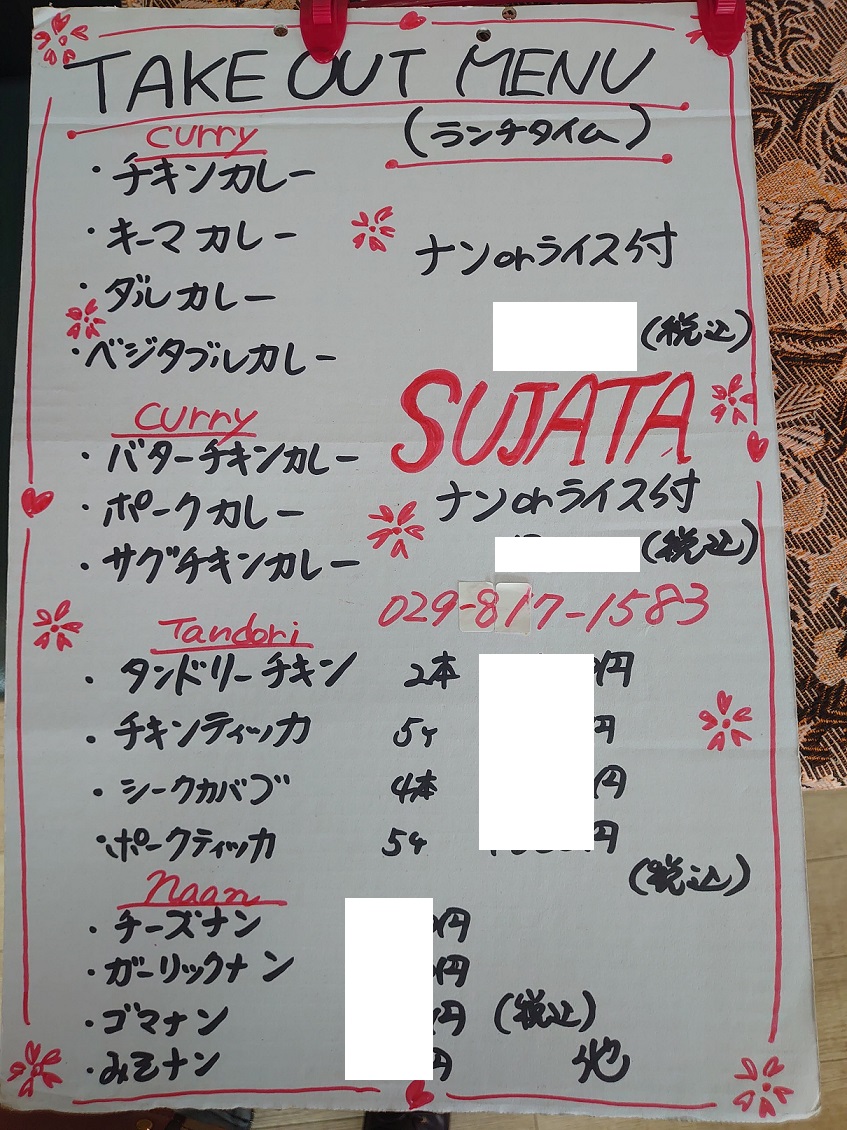 TAKE OUT MENU
(ランチタイム)
curry
・チキンカレー
・キーマカレー
・ダルカレー
・ベジタブルカレー
ナンorライス付
(税込)
SUJATA
curry
・バターチキンカレー
・ポークカレー
・サグチキンカレー
ナンorライス付
(税込)
029-817-1583
Tandori
・タンドリーチキン 2本 円
・チキンティッカ 5ケ 円
・シークカバブ 4本 円
・ポークティッカ 5ケ 円
(税込)
Naan
・チーズナン 円
・ガーリックナン 円
・ゴマナン 円 (税込)
・みそナン 円 他